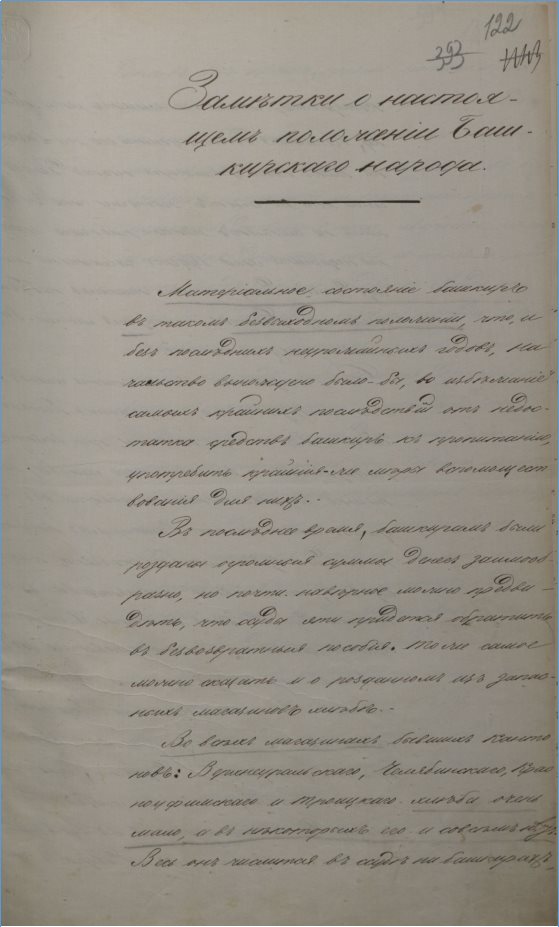 122
353
Замѣтки о настоя-
щемъ положеніи Баш-
кирскаго народа.
Матеріальное состояніе башкиръ
въ такомъ безвыходномъ положеніи, что, и
безъ послѣднихъ неурожайныхъ годовъ, на
чальство вынуждено было-бы, во избѣжаніе
самыхъ крайнихъ послѣдствій отъ недос-
татка средствъ башкиръ къ пропитанію,
употребить крайнія-же мѣры вспомощест
вованія для нихъ..
Въ послѣднее время, башкирамъ были
розданы огромныя суммы денегъ заимооб-
разно, но почти навѣрное можно предви-
дѣть, что ссуда эти придется обратить
въ безвозвратныя пособія. То же самое
можно сказать и о розданномъ изъ запас-
ныхъ магазиновъ хлѣбѣ..
Во всѣхъ магазинахъ бывшихъ канто
новъ: Верхнеуральскаго, Челябинскаго, Крас
ноуфимскаго и Троицкаго хлѣба очень
мало, а въ нѣкоторыхъ его и совсѣмъ нѣтъ.
Весь онъ числится въ ссудѣ на башкирахъ,